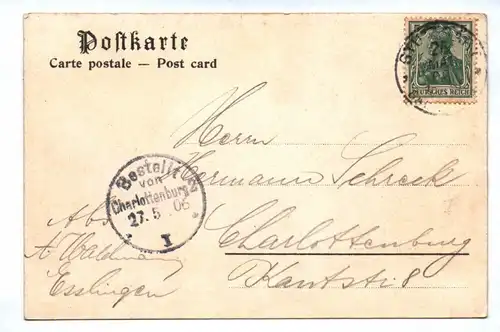 Postkarte
Carte postale — Post card
DEUTSCHES REICH
Herrn
Hermann Schreck
Bestellt
von
Charlottenburg 2
27.5.06
I
Charlottenburg
Kantstr 8
Abs.
A Waldmann
Esslingen